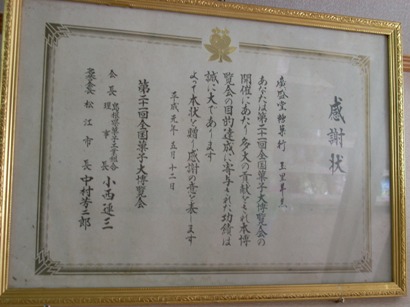 感謝状
糖菓行
あなたは第二十一回全国菓子大博覧会の
開催にあたり多大の貢献をされ本博
覧会の目的達成に寄与された功績は
誠に大であります
よって本状を贈り感謝の意を表します
平成元年五月十二日
第二十一回全国菓子大博覧会
会長 島根県菓子工業組合
理事長 小西連三
松江市長 中村芳二郎